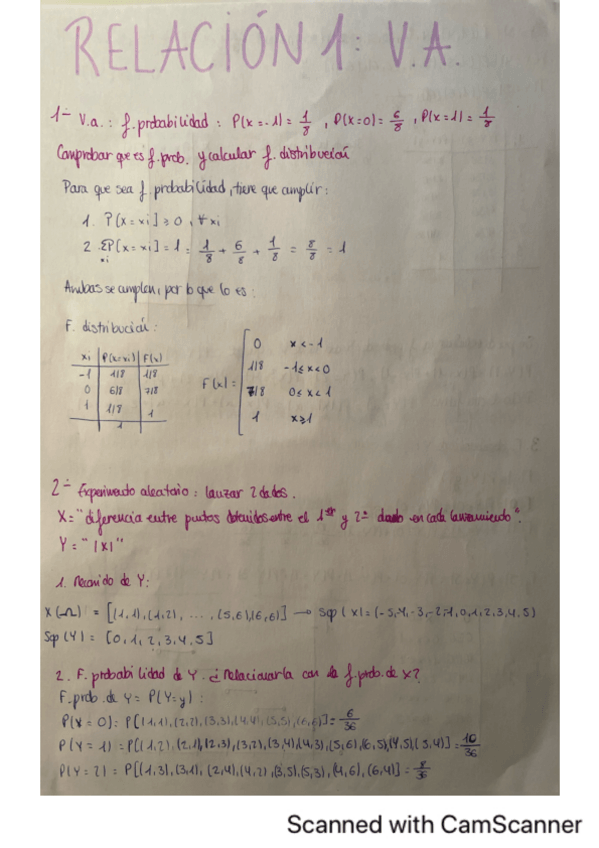 RELACIÓN 1: V.A.
1- V.a.: f. probabilidad: P(x=-1) = 1/8, P(x=0) = 6/8, P(x=1) = 1/8
Comprobar que es f. prob. y calcular f. distribución
Para que sea f. probabilidad, tiene que cumplir:
1. P[x=xi] ≥ 0, ∀xi
2. Σxi P[x=xi] = 1 = 1/8 + 6/8 + 1/8 = 8/8 = 1
Ambas se cumplen, por lo que lo es:
F. distribución:
xi P(x=xi) F(x)
-1 1/8 1/8
0 6/8 7/8
1 1/8 1
1
F(x) =
0 x < -1
1/8 -1 ≤ x < 0
7/8 0 ≤ x < 1
1 x ≥ 1
2- Experimento aleatorio: lanzar 2 dados.
X = "diferencia entre puntos obtenidos entre el 1er y 2º dado en cada lanzamiento".
Y = "|x|"
1. Recorrido de Y:
X(Ω) = [(1,1), (1,2), ..., (5,6), (6,6)] → Sop(x) = (-5,-4,-3,-2,-1,0,1,2,3,4,5)
Sop(Y) = [0,1,2,3,4,5]
2. F. probabilidad de Y. ¿Relacionarla con la f. prob. de X?
F. prob. de Y = P(Y=y):
P(Y = 0) = P[(1,1), (2,2), (3,3), (4,4), (5,5), (6,6)] = 6/36
P(Y = 1) = P[(1,2), (2,1), (2,3), (3,2), (3,4), (4,3), (5,6), (6,5), (4,5), (5,4)] = 10/36
P(Y = 2) = P[(1,3), (3,1), (2,4), (4,2), (3,5), (5,3), (4,6), (6,4)] = 8/36
Scanned with CamScanner